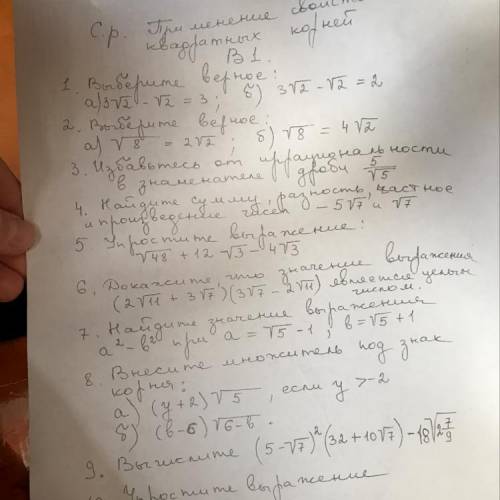 С.р. Применение свойств
квадратных корней
В1.
1. Выберите верное:
а) 3√2 - √2 = 3; б) 3√2 - √2 = 2
2. Выберите верное:
а) √8 = 2√2; б) √8 = 4√2
3. Избавьтесь от иррациональности
в знаменателе дроби 5/√5
4. Найдите сумму, разность, частное
и произведение чисел -5√7 и √7
5 Упростите выражение:
√48 + 12 - √3 - 4√3
6. Докажите, что значение выражения
(2√11 + 3√7)(3√7 - 2√11) является целым
числом.
7. Найдите значение выражения
a² - b² при a = √5 - 1, b = √5 + 1
8. Внесите множитель под знак
корня:
а) (y+2)√5, если y > -2
б) (b-6)√6-b.
9. Вычислите (5-√7)²(32+10√7) - 18√2 7/9
Упростите выражение